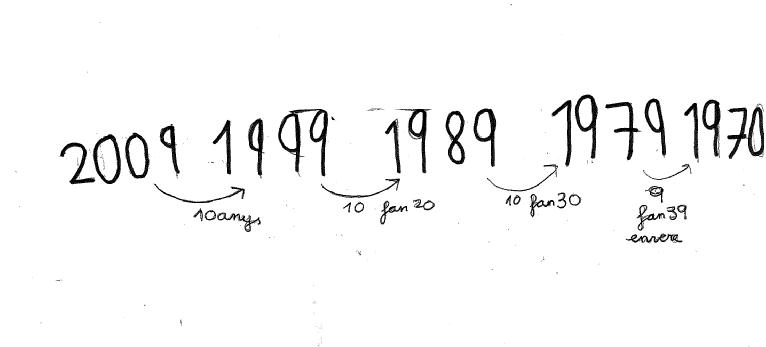 2009 1999 1989 1979 1970
10 anys 10 fan 20 10 fan 30 9
fan 39
enrere